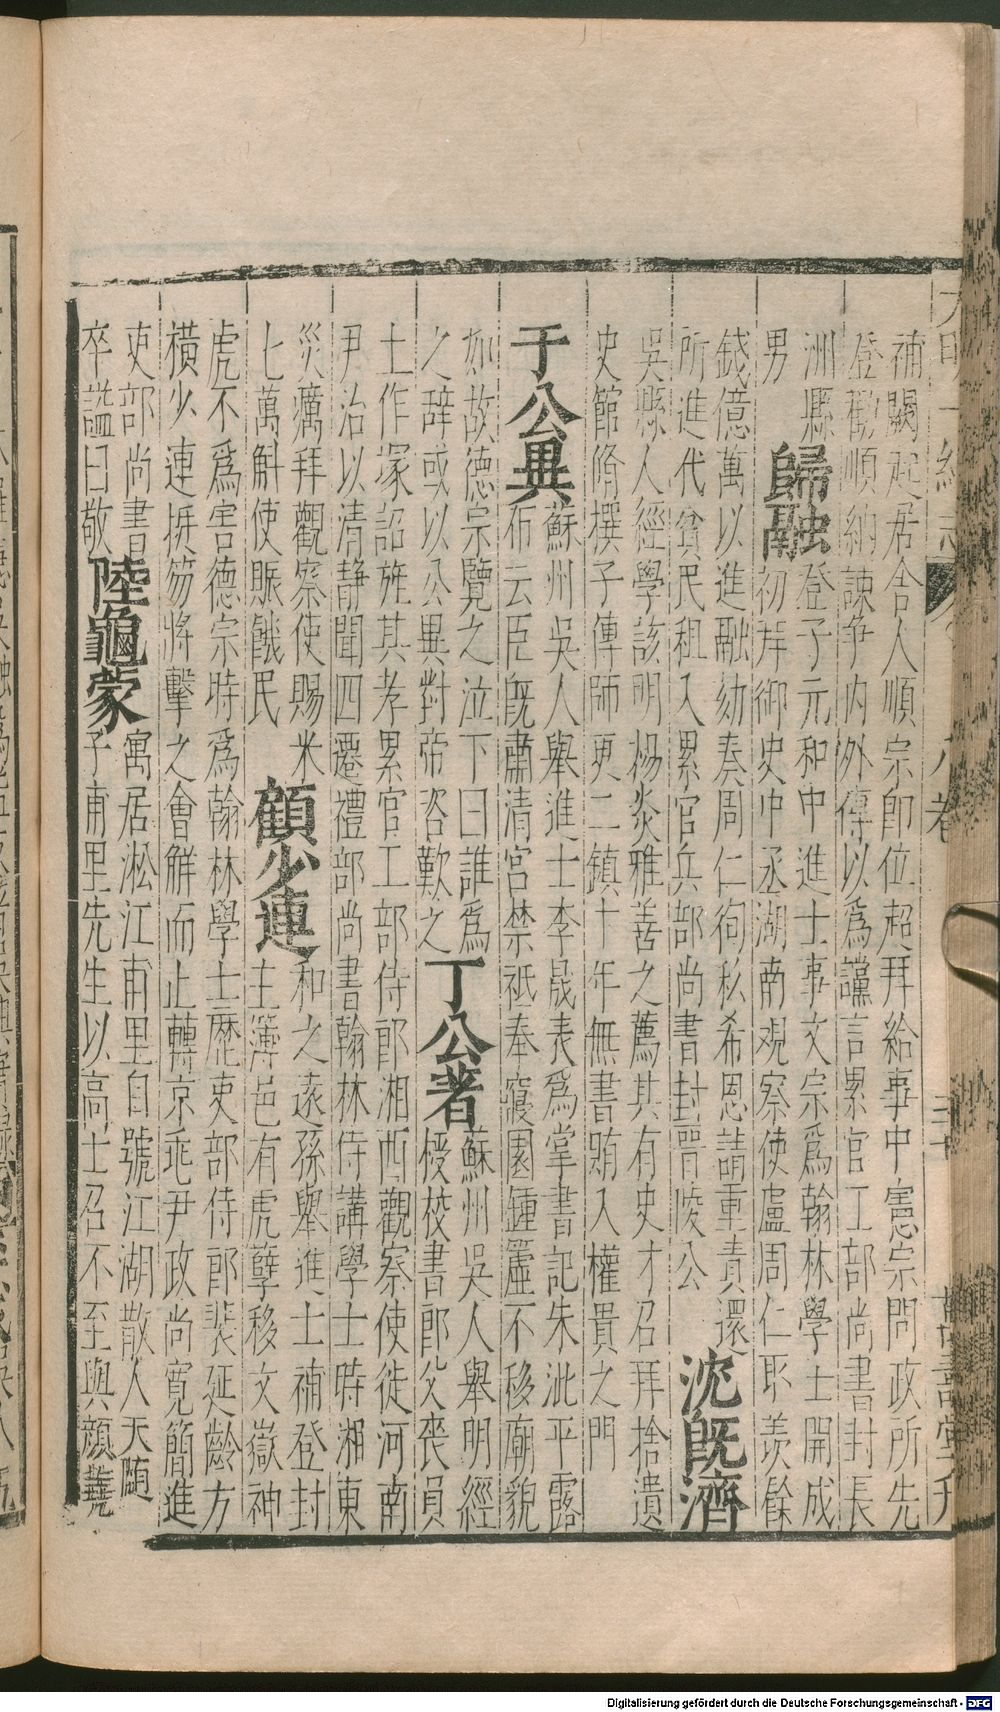 補闕起居舍人順宗即位超拜給事中憲宗問政所先
登勸順納諫爭內外傳以爲讜言累官工部尚書封長
洲縣
男
歸融
登子元和中進士事文宗爲翰林學士開成
初拜御史中丞湖南观察使盧周仁取羨餘
錢億萬以進融劾奏周仁徇私希恩請重責還
所進代貧民租入累官兵部尚書封晉陵公
沈旣濟
吳縣人經學該明楊炎雅善之薦其有史才召拜拾遺
史館脩撰子傳師更二鎮十年無書賄入權貴之門
于公異
蘇州吳人舉進士李晟表爲掌書記朱泚平露
布云臣旣肅清宮禁祗奉寢園鍾簴不移廟貌
如故德宗覽之泣下曰誰爲
之辭或以公異對帝咨歎之
丁公著
蘇州吳人舉明經
授校書郎父丧員
土作塚詔旌其孝累官工部侍郎湘西觀察使徙河南
尹治以清静聞四遷禮部尚書翰林侍講學士時湘東
災癘拜觀察使賜米
七萬斛使賑饑民
顧少連
和之遠孫舉進士補登封
主簿邑有虎孽移文嶽神
虎不爲害德宗時爲翰林學士歷吏部侍郎裴延齡方
横少連挺笏將擊之會解而止轉京兆尹政尚寛簡進
吏部尚書
卒諡曰敬
陸龜蒙
寓居淞江甫里自號江湖散人天随
子甫里先生以高士召不至與顏蕘